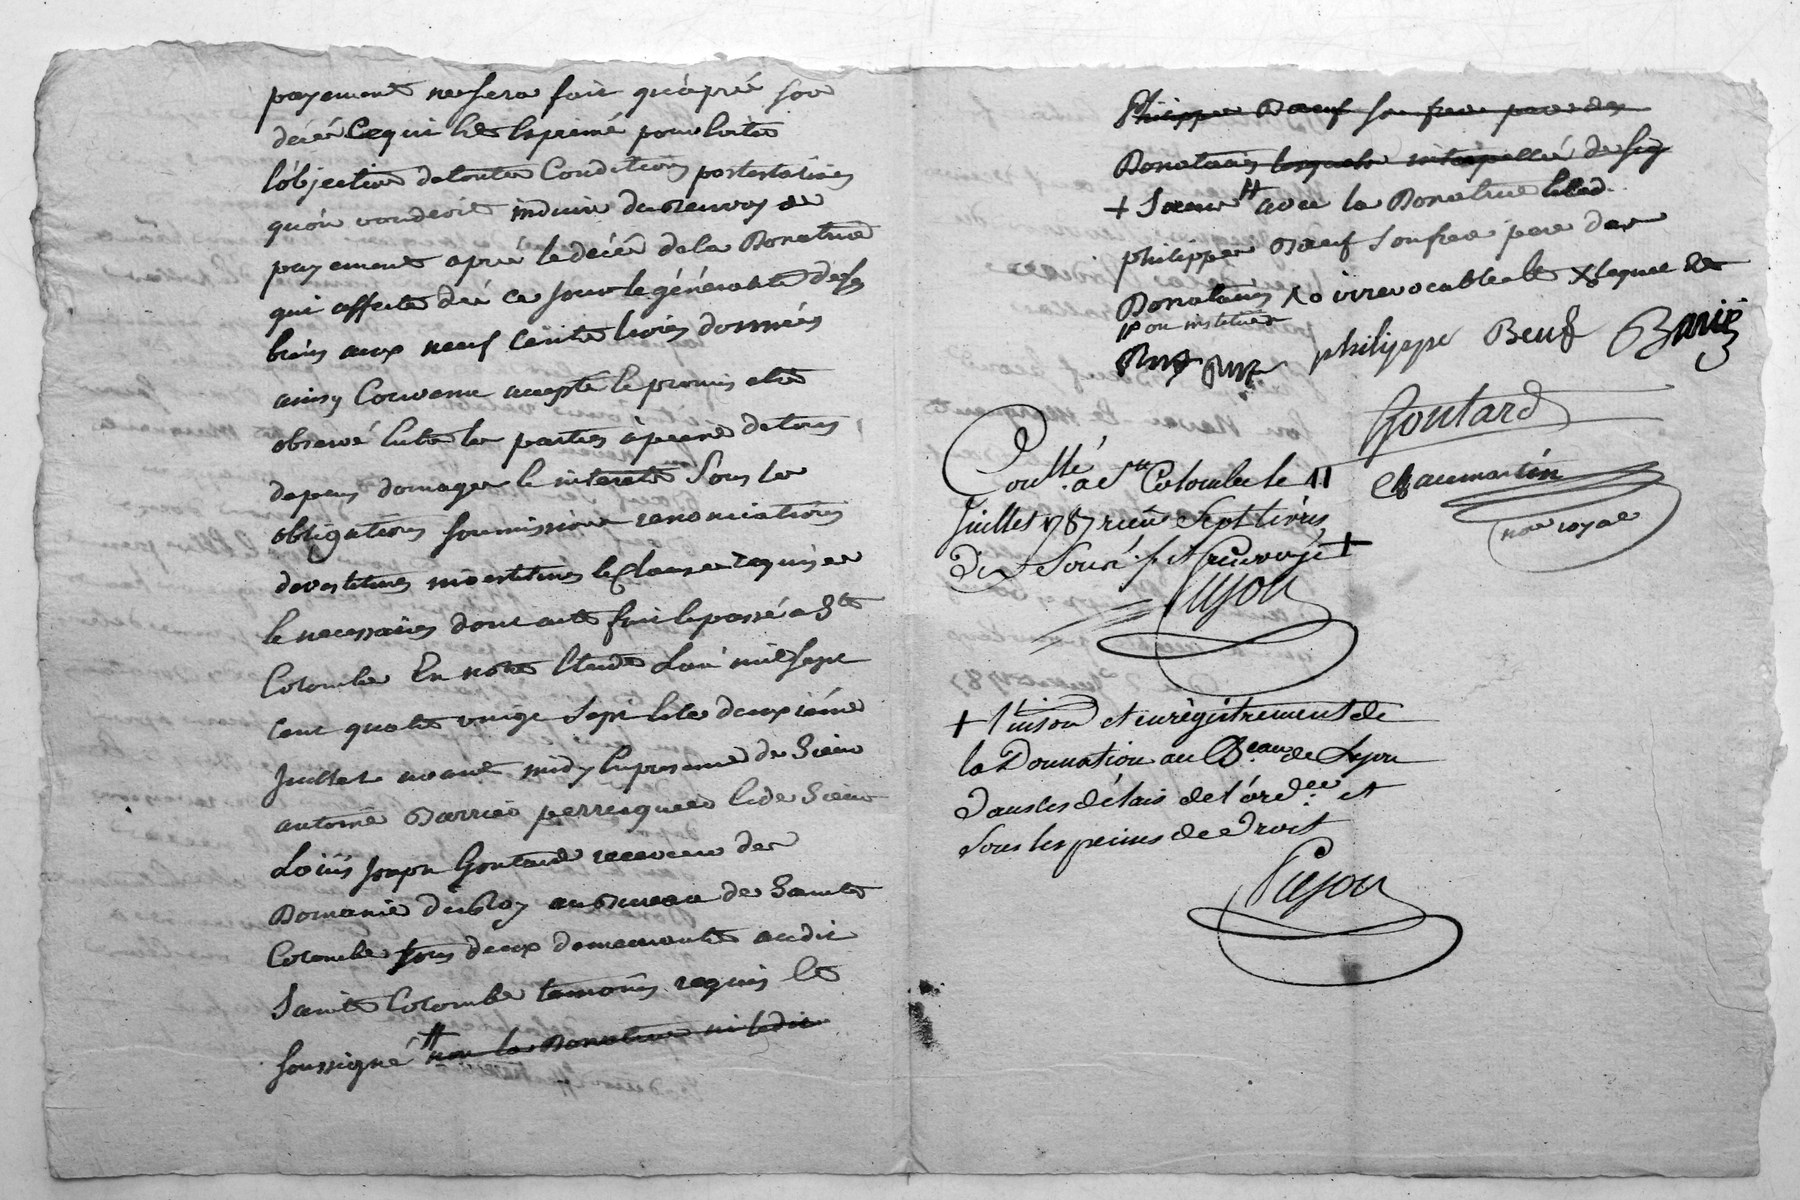 payement ne sera fait qu'apré son
décés Ce qui Est Exprimé pour Eviter
l'objection de toutes Conditions potestatives
qu'on voudroit induire du renvoy de
payement aprés le décés de la Donatrice
qui affecte dés ce jour le généralité de ses
biens aux neuf Cents livres données
ainsy Convenu accepté Le promis etre
observé Entre les parties à peine de tous
depens domages Et interets Sous les
obligations soumissions renonciations
devestitures investitures Et Clauses requises
Et necessaires dont acte fait Et passé a Ste
Colombe En notre Etude L'an mil sept
cent quatre vingt sept Et le deuxiéme
Juillet avant midy En presence de Sieur
antoine Barrier perruquier Et de Sieur
Louis Joseph Goutard receveur des
Domaines du Roy au Bureau de Sainte
Colombe tous deux demeurants audit
Sainte Colombe temoins requis Et
soussignés # non la Donatrice ni ledit
Philippe Bœuf son frere pere des
Donataires lesquels interpellés de sig
+ Sœur # avec la Donatrice Et led.
philippe Bœuf son frere pere des
Donataires irrevocable et lequel des
ou institués
philippe Beuf Barié
Goutard
Chaumartin
nore royal
Conllé a Ste Colombe le 11
Juillet 1787 reçu Sept livres
Dix Sous sf et renvoyé +
Pujou
+ l'insion et enregistrement de
la Donnation au Beau de Lyon
Dans les délais de l'ordce et
Sous les peines de Droit
Pujou